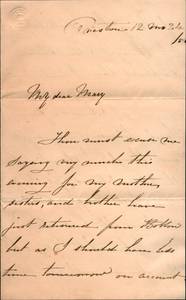 12 mo 24
My dear Mary
Thou must excuse me
saying very much this
evening for my mother,
sister, and brother have
just returned from
but as I should have less
time tomorrow on account